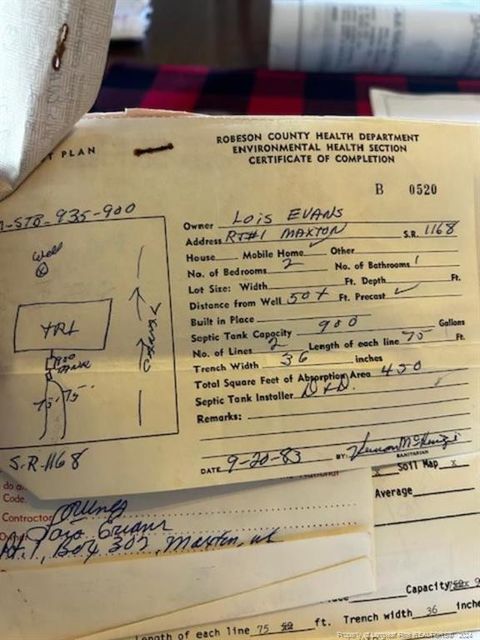 T PLAN
ROBESON COUNTY HEALTH DEPARTMENT
ENVIRONMENTAL HEALTH SECTION
CERTIFICATE OF COMPLETION
B 0520
-STB-935-900
Well
TRL
900
75' 75'
S.R. 1168
Owner Lois EVANS
Address RT#1 MAXTON S.R. 1168
House Mobile Home Other
No. of Bedrooms 2 No. of Bathrooms 1
Lot Size: Width Ft. Depth Ft.
Distance from Well 50+ Ft. Precast ✓
Built in Place
Septic Tank Capacity 900 Gallons
No. of Lines 2 Length of each line 75 Ft.
Trench Width 36 inches
Total Square Feet of Absorption Area 450
Septic Tank Installer D&D
Remarks:
DATE 9-20-83 BY: Vernon McKenzie
SANITARIAN
National
Soil Map X
do a
Code.
Average
Contractor Owner
Lois Evans
Rt. 1, Box 302, Maxton, nc
Capacity
Length of each line 75 ft. Trench width 36 inche
Property of Longleaf Pine REALTORS® 2024